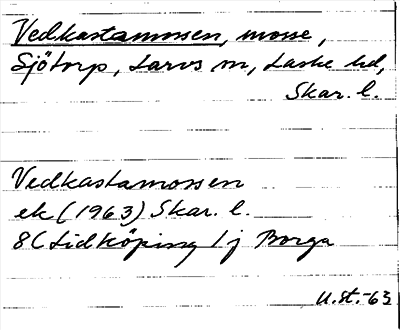 Vedkastamossen, mosse,
Sjötorp, Larvs sn, Laske hd,
Skar. l.
Vedkastamossen
ek (1963) Skar. l.
8C Lidköping 1j Borga
U.st.-63